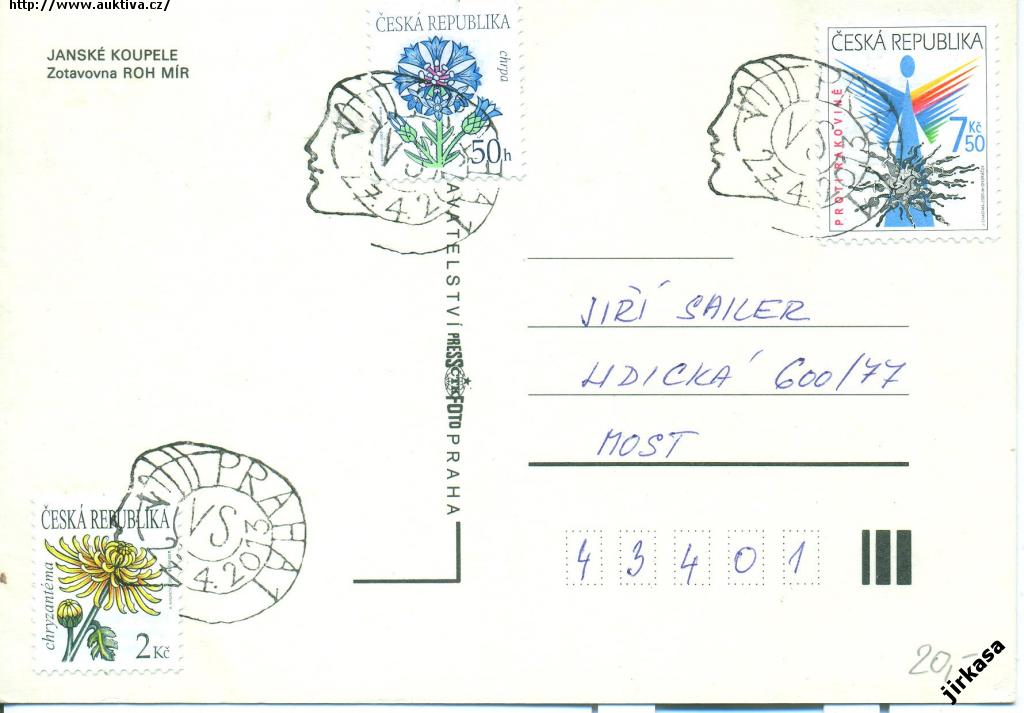 http://www.auktiva.cz/
JANSKÉ KOUPELE
Zotavovna ROH MÍR
ČESKÁ REPUBLIKA
chrpa
50h
ČESKÁ REPUBLIKA
PROTI RAKOVINĚ
7 Kč 50
VS
27.4.2013
VS
27.4.2
AVATELSTVÍ PRESSFOTO PRAHA
ČTK
JIŘÍ SAILER
LIDICKÁ 600/77
MOST
43401
PRAHA 1
VS
4.2013
ČESKÁ REPUBLIKA
chryzantéma
2 Kč
20,-
jirkasa